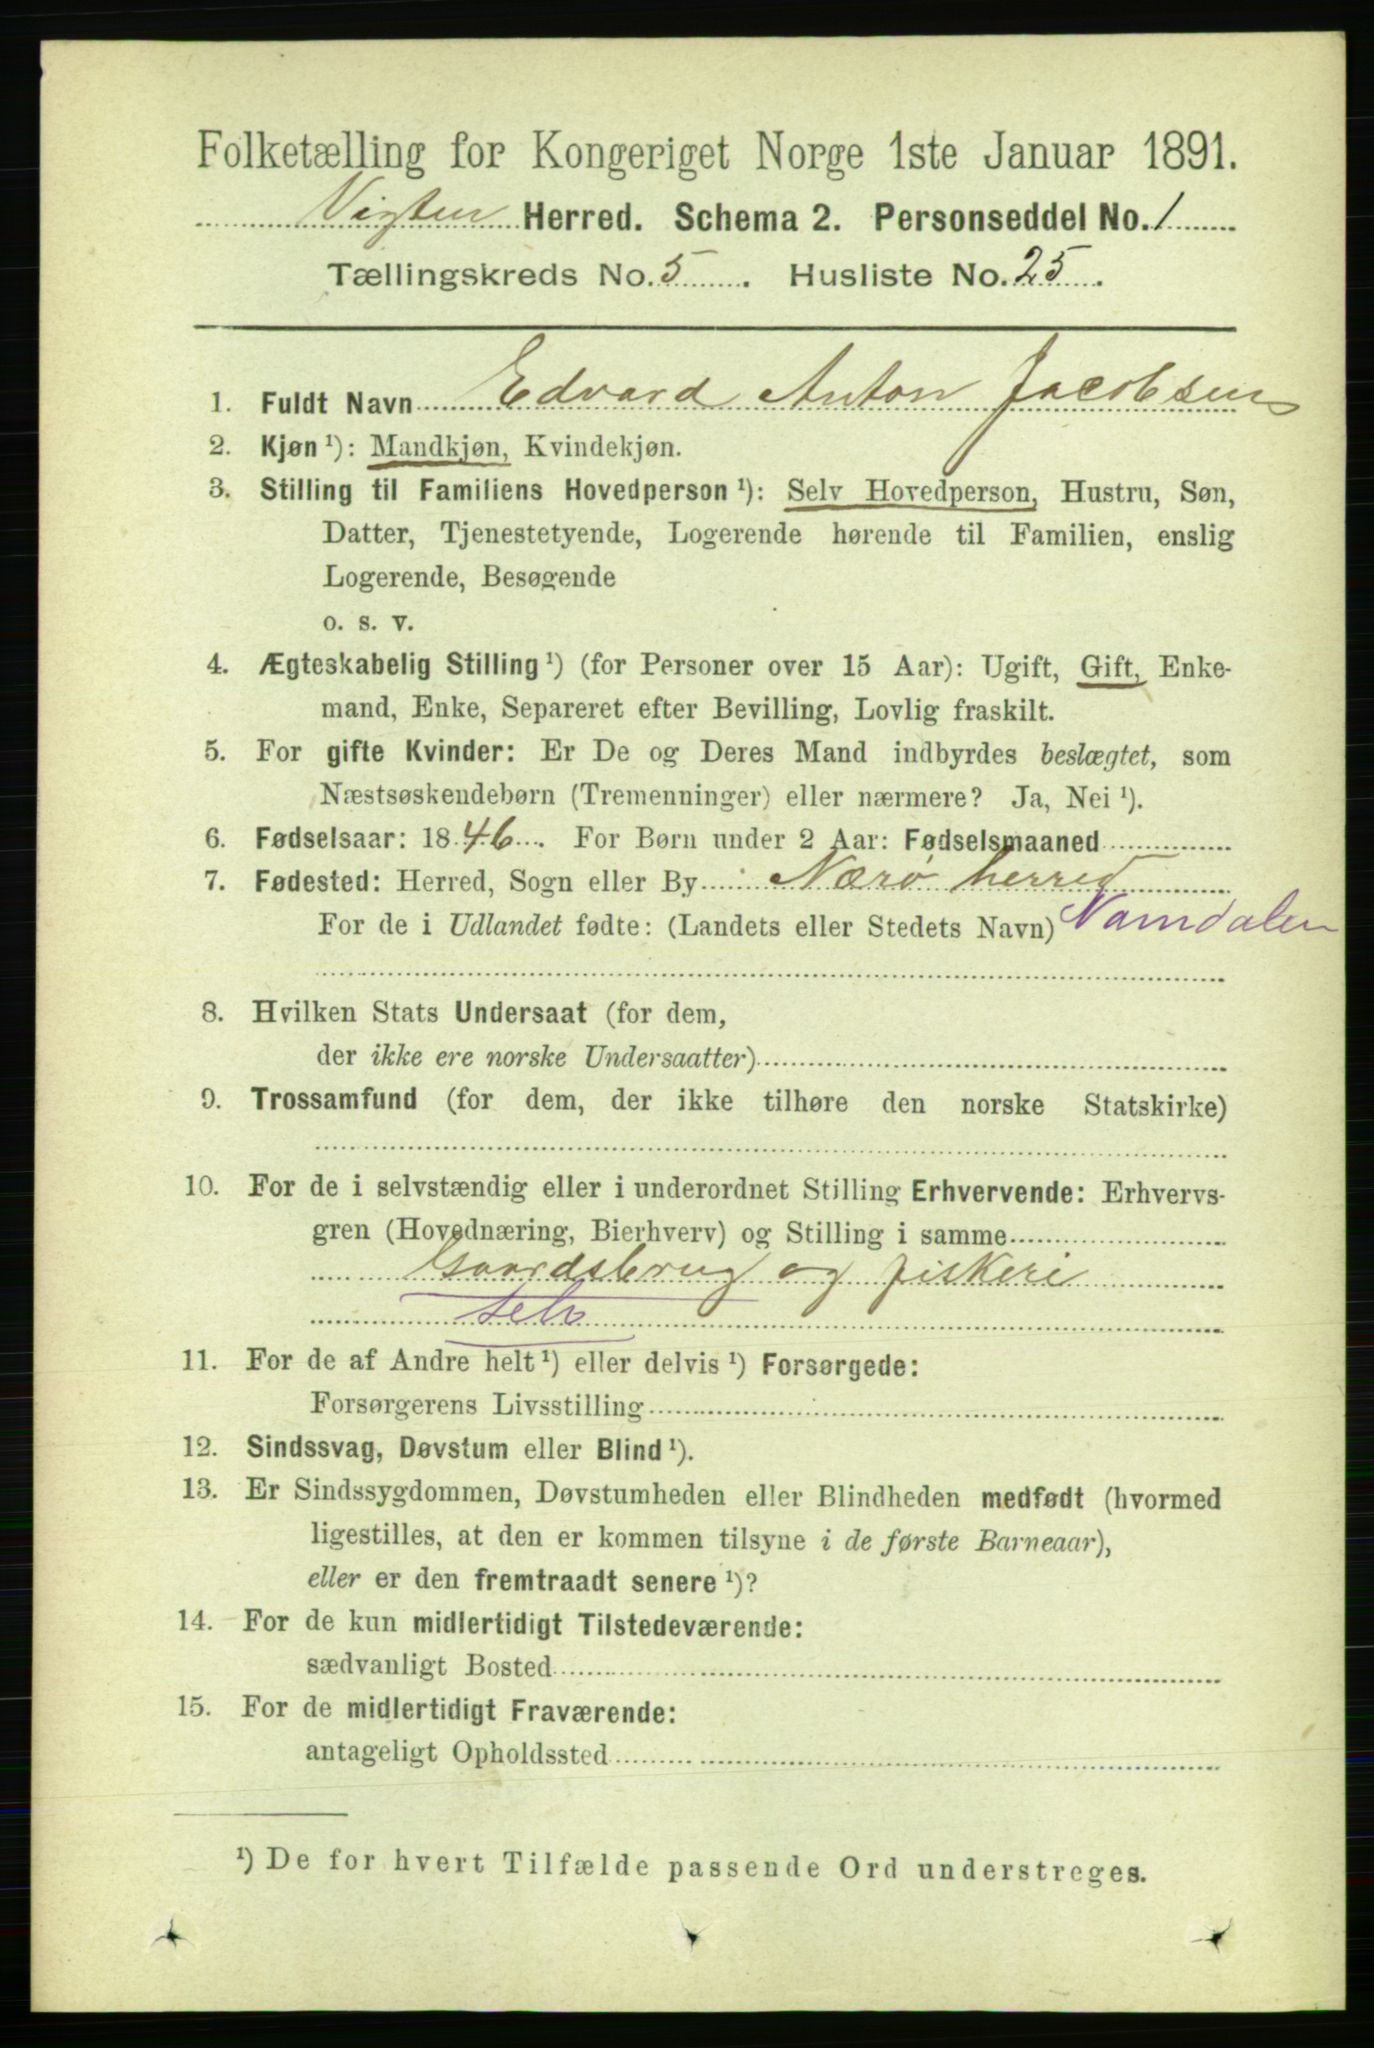 Folketælling for Kongeriget Norge 1ste Januar 1891.
Vigten Herred. Schema 2. Personseddel No. 1
Tællingskreds No. 5. Husliste No. 25.
1. Fuldt Navn Edvard Anton Jacobsen
2. Kjøn ¹): Mandkjøn, Kvindekjøn.
3. Stilling til Familiens Hovedperson ¹): Selv Hovedperson, Hustru, Søn,
Datter, Tjenestetyende, Logerende hørende til Familien, enslig
Logerende, Besøgende
o. s. v.
4. Ægteskabelig Stilling ¹) (for Personer over 15 Aar): Ugift, Gift, Enke-
mand, Enke, Separeret efter Bevilling, Lovlig fraskilt.
5. For gifte Kvinder: Er De og Deres Mand indbyrdes beslægtet, som
Næstsøskendebørn (Tremenninger) eller nærmere? Ja, Nei ¹).
6. Fødselsaar: 1846. For Børn under 2 Aar: Fødselsmaaned
7. Fødested: Herred, Sogn eller By Nærø herred
For de i Udlandet fødte: (Landets eller Stedets Navn) Namdalen
8. Hvilken Stats Undersaat (for dem,
der ikke ere norske Undersaatter)
9. Trossamfund (for dem, der ikke tilhøre den norske Statskirke)
10. For de i selvstændig eller i underordnet Stilling Erhvervende: Erhvervs-
gren (Hovednæring, Bierhverv) og Stilling i samme
Gaardsbrug og fiskeri
selv
11. For de af Andre helt ¹) eller delvis ¹) Forsørgede:
Forsørgerens Livsstilling
12. Sindssvag, Døvstum eller Blind ¹).
13. Er Sindssygdommen, Døvstumheden eller Blindheden medfødt (hvormed
ligestilles, at den er kommen tilsyne i de første Barneaar),
eller er den fremtraadt senere ¹)?
14. For de kun midlertidigt Tilstedeværende:
sædvanligt Bosted
15. For de midlertidigt Fraværende:
antageligt Opholdssted
¹) De for hvert Tilfælde passende Ord understreges.